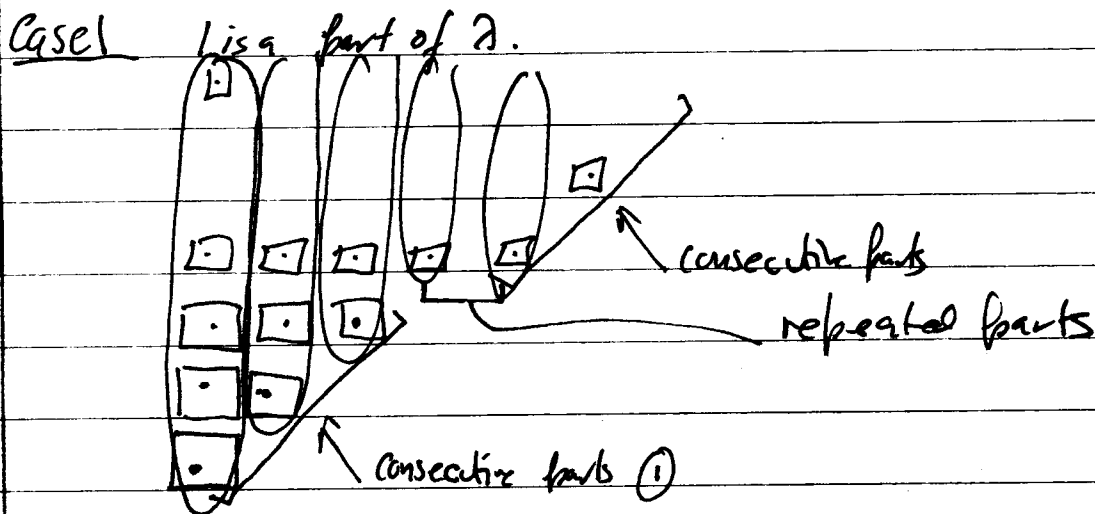 Case 1 1 is a part of λ.
consecutive parts
repeated parts
consecutive parts ①